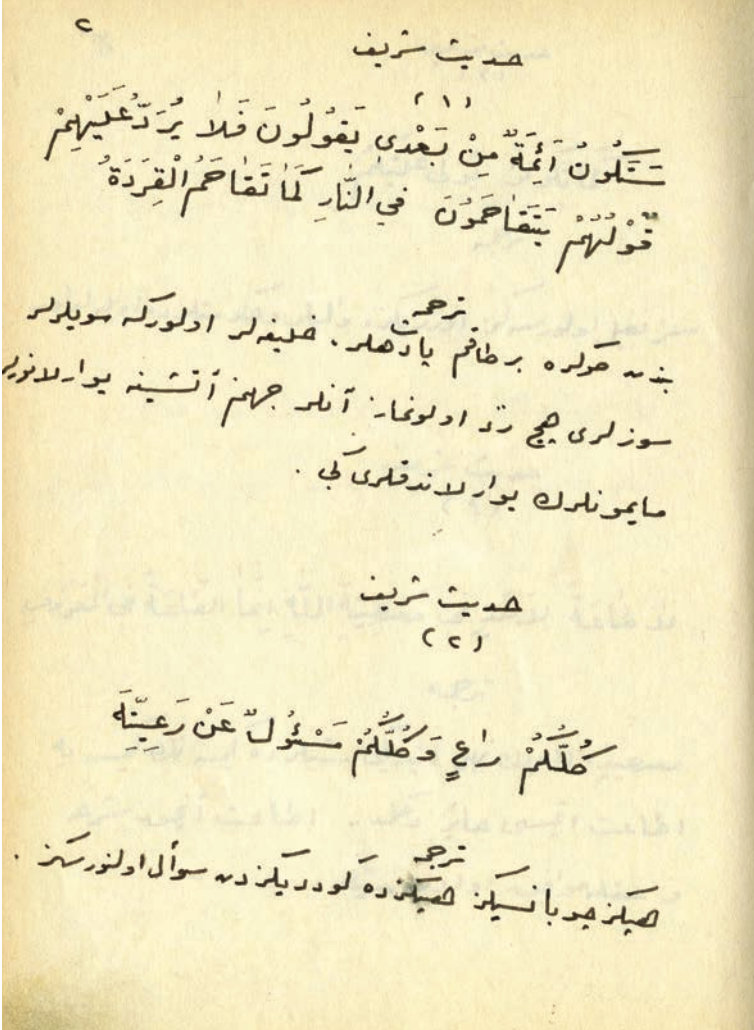 ٢
حديث شريف
(١)
سَتَكُونُ اَئِمَةٌ مِنْ بَعْدى يَقوُلُونَ فَلاٰ يُرَدُّ عَلَيْهِمْ
قَوْلُهُمْ يَتَقٰاحَموُنَ في النّٰارِ كَمٰا تَقٰاحَمُ الْقِرَدَةُ
ترجمه
بندن صوكره بر طاقم پادشاهلر . خليفه لر اولوركه سويلرلر
سوزلرى هيچ ردّ اولونماز آنلر جهنم آتشينه يوارلانورلر
مايمونلرك يوارلاندقلرى كبى .
حديث شريف
(٢)
كُلُّكُمْ راعٍ وَكُلُّكُمْ مَسْئوُلٌ عَنْ رَعِيَّتِهِ
ترجمه
هپكز چوبانسيكز هپكزده كوددیككزدن سوأل اولنورسكز .